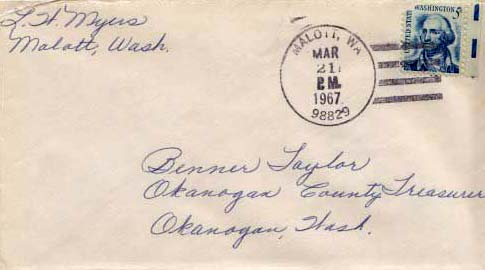 L. H. Myers
Malott, Wash.
MALOTT, WA
MAR
21
P.M.
1967
98829
UNITED STATES
WASHINGTON 5¢
Benner Taylor
Okanogan County Treasurer
Okanogan, Wash.